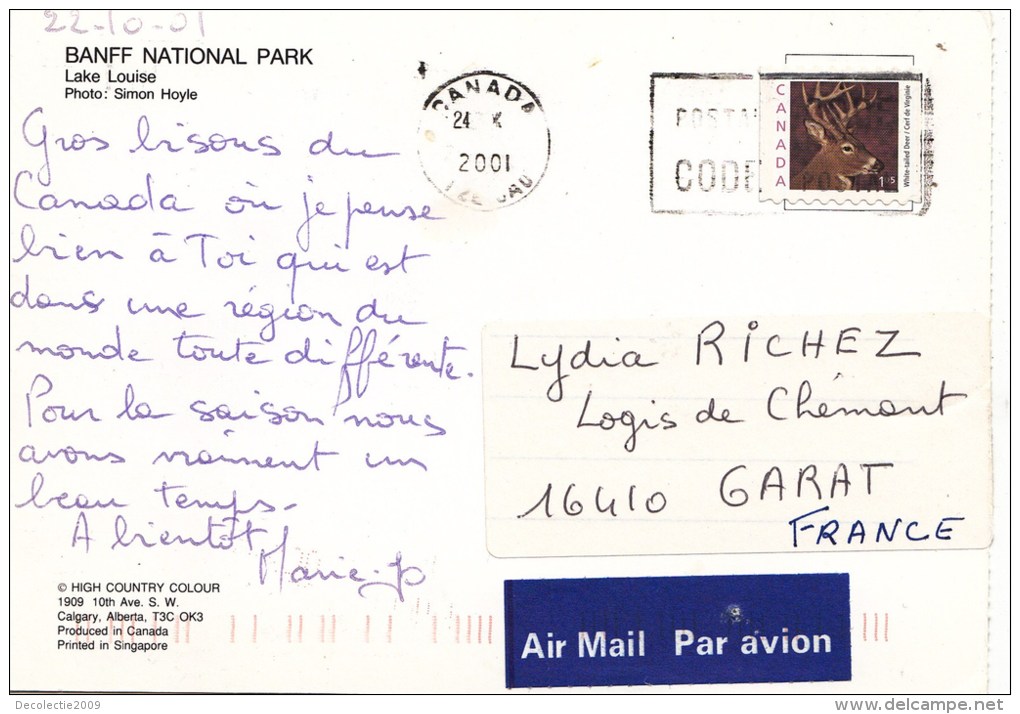 22-10-01
BANFF NATIONAL PARK
Lake Louise
Photo: Simon Hoyle
Gros bisous du
Canada où je pense
bien à Toi qui est
dans une région du
monde toute différente.
Pour la saison nous
avons vraiment un
beau temps.
A bientôt
Marie-Jo
© HIGH COUNTRY COLOUR
1909 10th Ave. S. W.
Calgary, Alberta, T3C OK3
Produced in Canada
Printed in Singapore
CANADA
24
2001
POSTAL
CODE
POSTAL
CANADA
White-tailed Deer / Cerf de Virginie
Lydia RICHEZ
Logis de Chémont
16410 GARAT
FRANCE
Air Mail Par avion
Decolectie2009